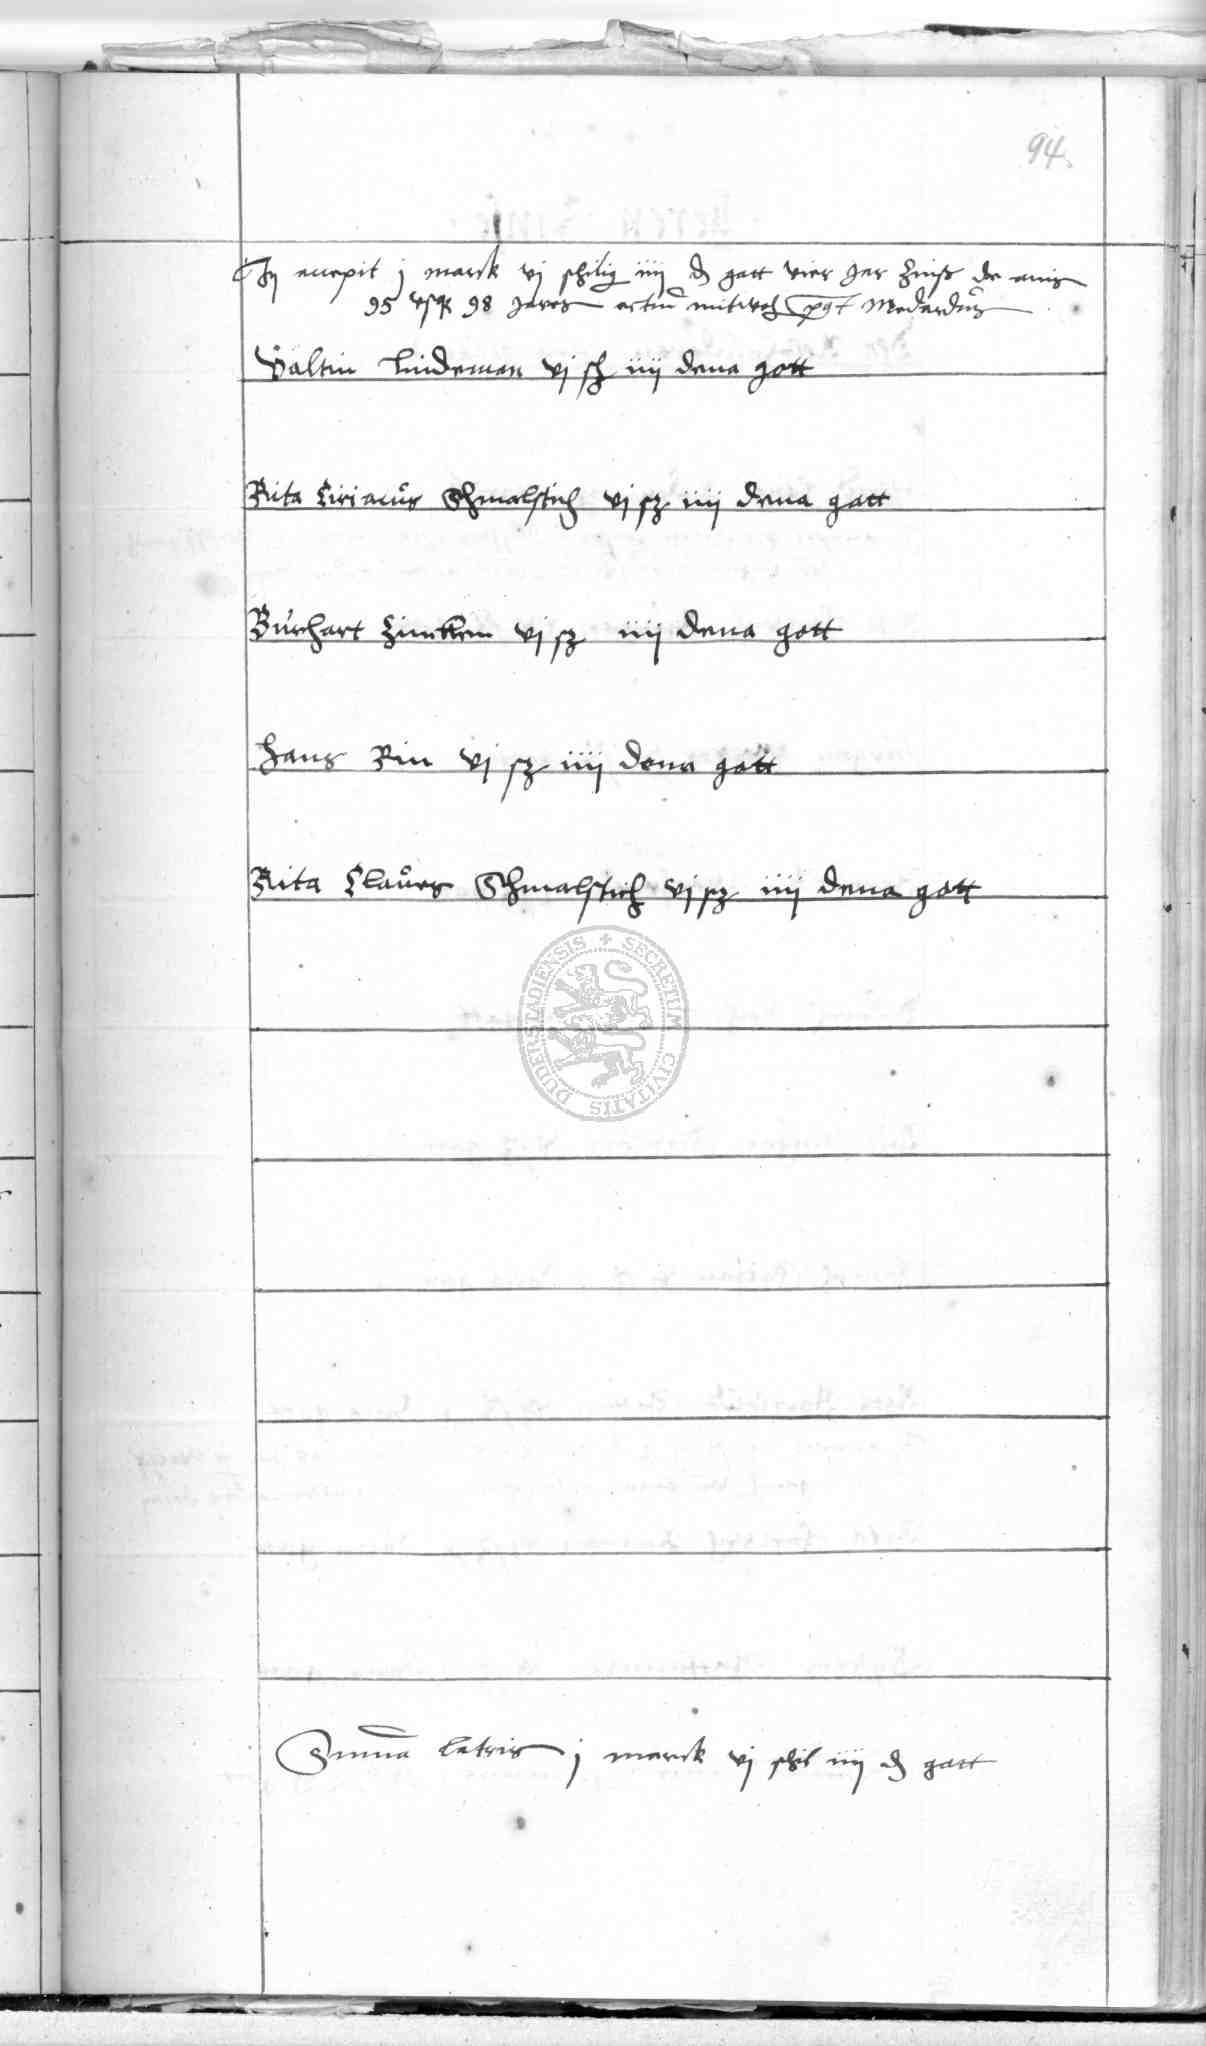 94.
accepit j marck vj schilig iiij ₰ gott vier Jar Zinß de anis
95 vsqȝ 98 Jares actu mitwoch post Medardus
Valtin Lindeman vj sz iiij dena gott
Rita Ciriacus Schmalstich vj sz iiij dena gott
Burchart Zincken vj sz iiij dena gott
Hans Rin vj sz iiij dena gott
Rita Clawes Schmalstich vj sz iiij dena gott
SECRETUM CIVITATIS DUDERSTADIENSIS
Summa lateris j marck vj schil iiij ₰ gott